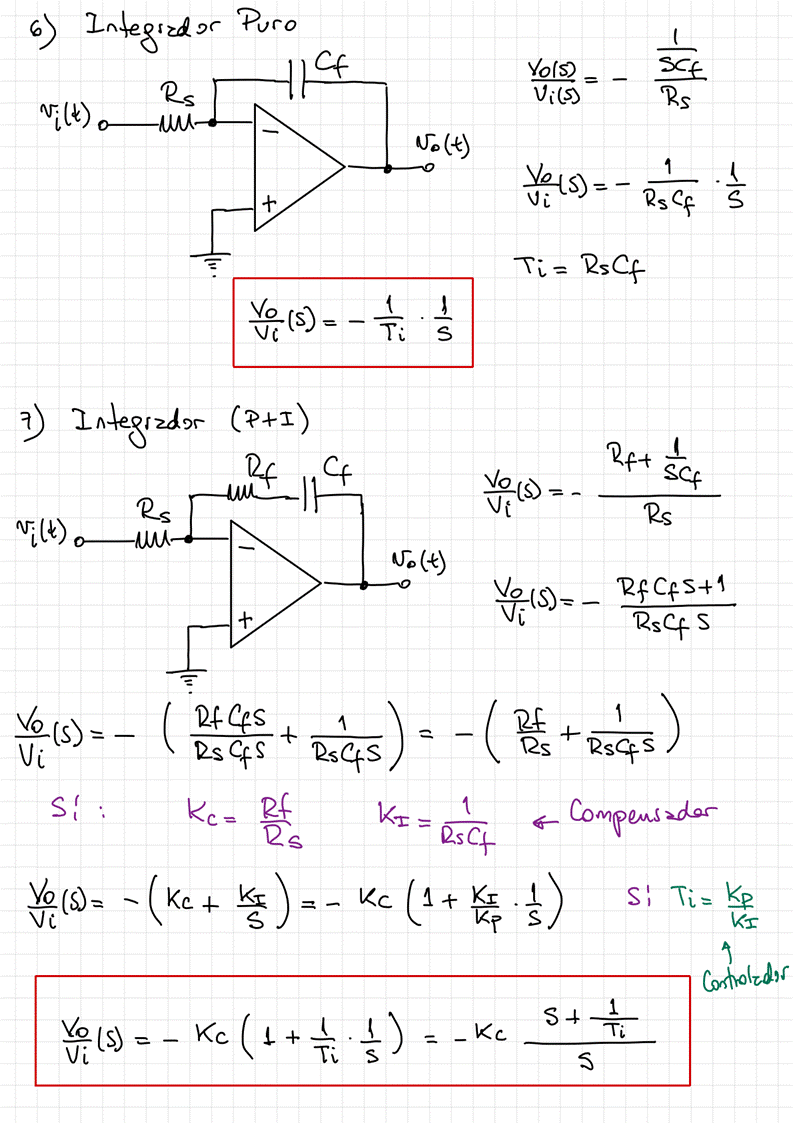 6) Integrador Puro
Cf
Rs
vi(t)
−
+
vo(t)
Vo(s)/Vi(s) = - (1/SCf)/Rs
Vo/Vi(s) = - 1/RsCf · 1/S
Ti = RsCf
Vo/Vi(s) = - 1/Ti · 1/S
7) Integrador (P+I)
Rf Cf
Rs
vi(t)
−
+
vo(t)
Vo/Vi(s) = - (Rf + 1/SCf)/Rs
Vo/Vi(s) = - (RfCfS+1)/(RsCfS)
Vo/Vi(s) = - (RfCfS/RsCfS + 1/RsCfS) = - (Rf/Rs + 1/RsCfS)
Si: Kc = Rf/Rs KI = 1/RsCf ← Compensador
Vo/Vi(s) = - (Kc + KI/S) = - Kc (1 + KI/Kp · 1/S) Si Ti = Kp/KI
↑
Controlador
Vo/Vi(s) = - Kc (1 + 1/Ti · 1/S) = - Kc (S + 1/Ti)/S